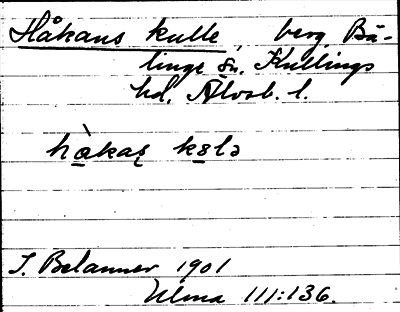 Håkans kulle, berg, Bä-
linge sn. Kullings
hd, Älvsb. l.
hàkas kɞlə
I. Belanner 1901
Ulma 111:136.